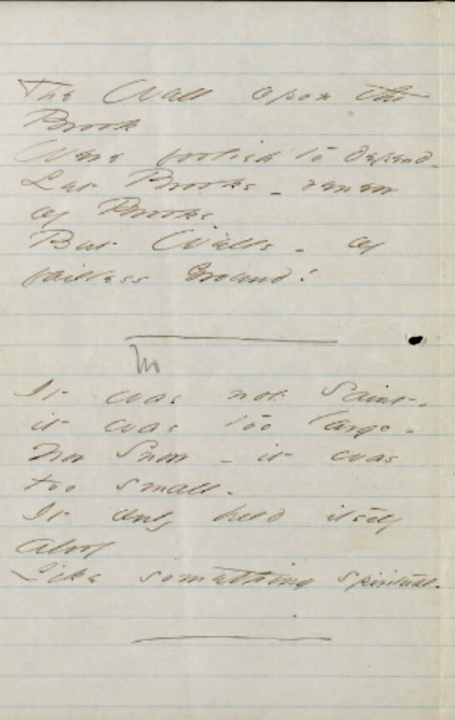 The Well upon the
Brook
Were foolish to depend -
Let Brooks - renew
of Brooks
But Wells - of
failless Ground!
It was not Saint -
it was too large -
Nor Snow - it was
too small -
It only held itself
aloof
Like something spiritual -